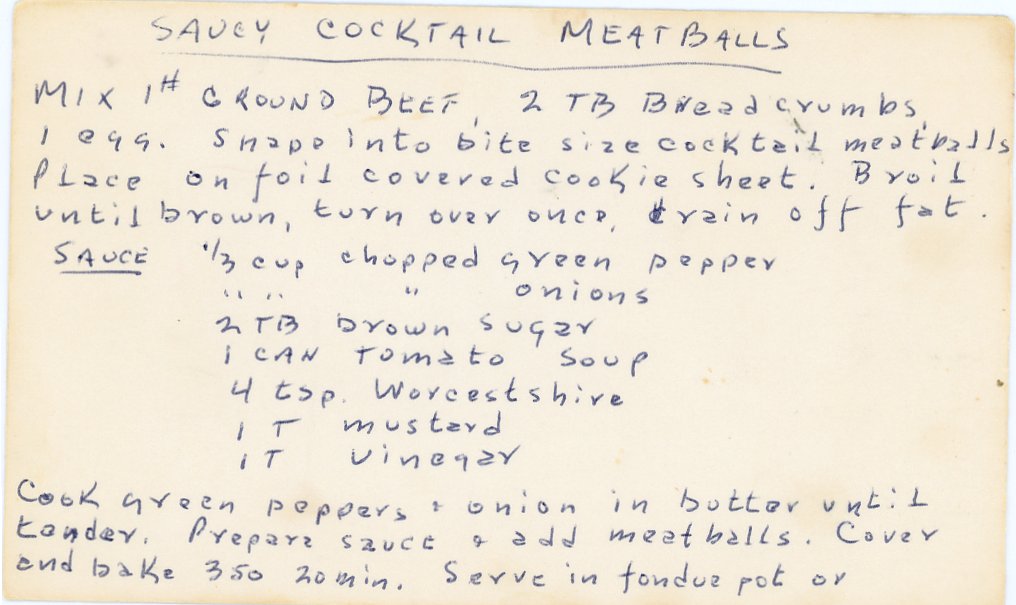 SAUCY COCKTAIL MEATBALLS
MIX 1# GROUND BEEF, 2 TB Bread crumbs,
1 egg. Shape into bite size cocktail meatballs
Place on foil covered cookie sheet. Broil
until brown, turn over once, drain off fat.
SAUCE 1/3 cup chopped green pepper
" " " onions
2 TB brown sugar
1 CAN TOMATO SOUP
4 tsp. Worcestshire
1 T mustard
1 T vinegar
Cook green peppers + onion in butter until
tender. Prepare sauce + add meatballs. Cover
and bake 350 20 min. Serve in fondue pot or